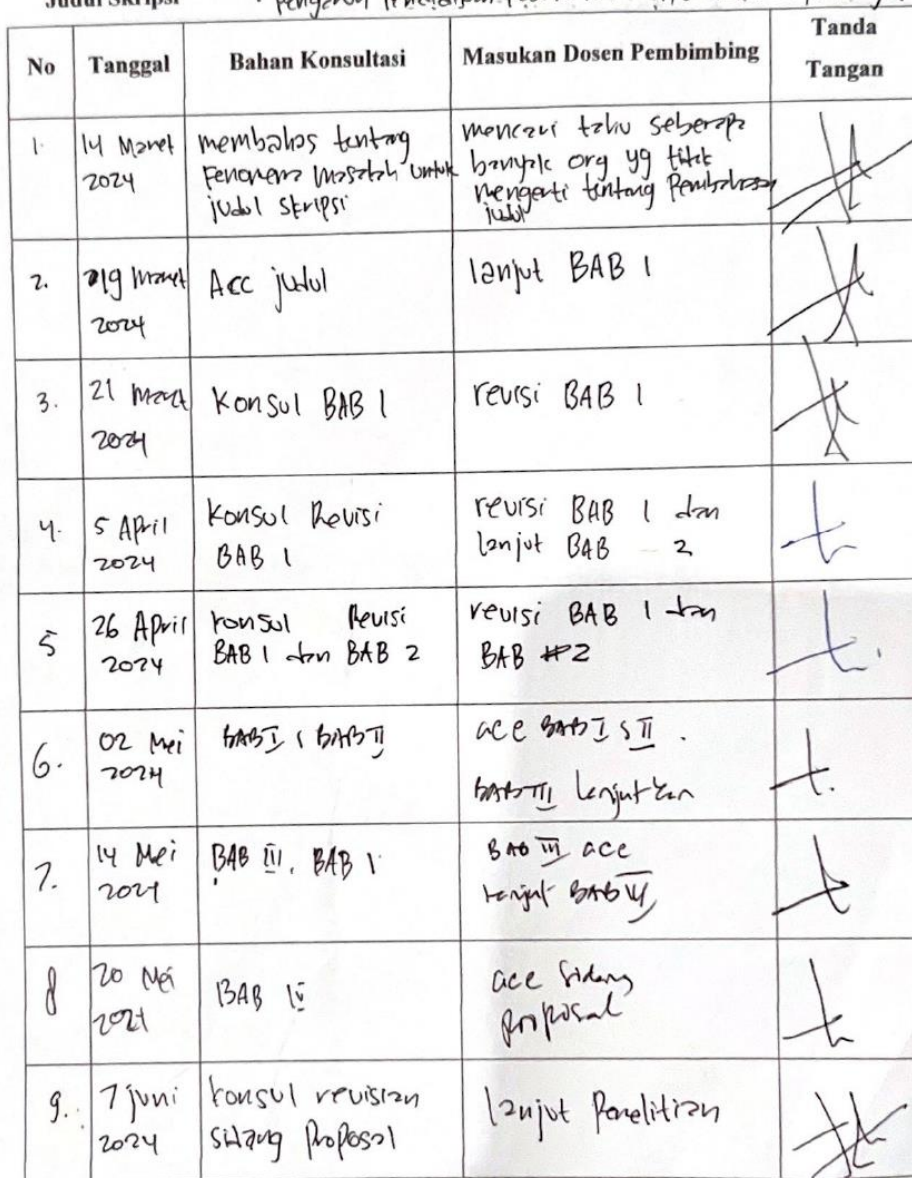 Judul Skripsi
No
Tanggal
Bahan Konsultasi
Masukan Dosen Pembimbing
Tanda
Tangan
1.
14 Maret
2024
membahas tentang
Fenomena masalah untuk
judul skripsi
mencari tahu seberapa
banyak org yg tidak
mengerti tentang Pembahasan
judul
2.
19 Maret
2024
Acc judul
lanjut BAB 1
3.
21 Maret
2024
Konsul BAB 1
revisi BAB 1
4.
5 April
2024
Konsul Revisi
BAB 1
revisi BAB 1 dan
lanjut BAB 2
5
26 April
2024
konsul Revisi
BAB 1 dan BAB 2
revisi BAB 1 dan
BAB 2
6.
02 Mei
2024
BAB I BAB II
acc BAB I II .
BAB III lanjutkan
7.
14 Mei
2024
BAB III. BAB 1
BAB III acc
lanjut BAB IV
8
20 Mei
2024
BAB IV
acc Sidang
proposal
9.
7 juni
2024
konsul revisian
sidang proposal
lanjut Penelitian